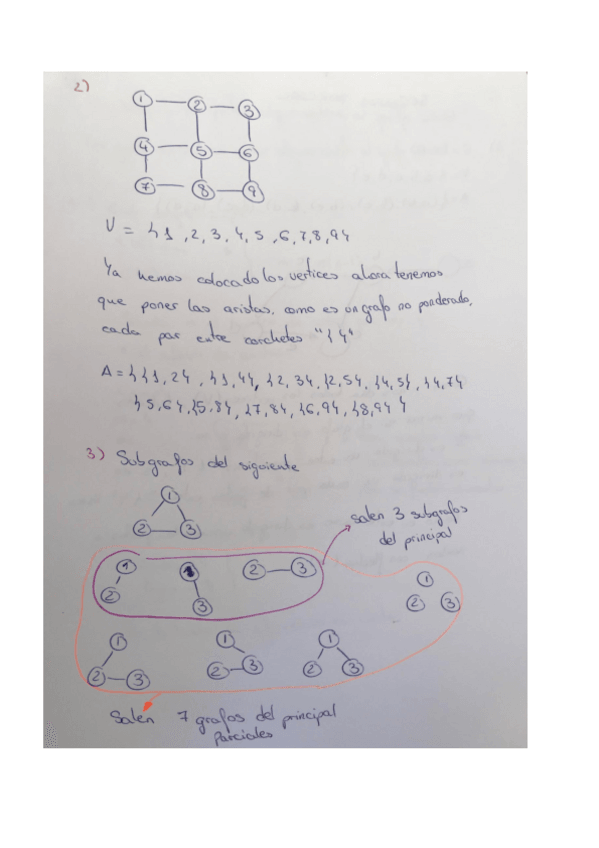 2)
1 2 3
4 5 6
7 8 9
V = {1, 2, 3, 4, 5, 6, 7, 8, 9}
Ya hemos colocado los vertices ahora tenemos
que poner las aristas, como es un grafo no ponderado,
cada par entre corchetes "{ }"
A = {{1, 2}, {1, 4}, {2, 3}, {2, 5}, {4, 5}, {4, 7}
{5, 6}, {5, 8}, {7, 8}, {6, 9}, {8, 9}}
3) Subgrafos del siguiente
1
2 3
salen 3 subgrafos
del principal
1 1 2 3
2 3
1
2 3
1 1 1
2 3 2 3 2 3
Salen 7 grafos del principal
parciales